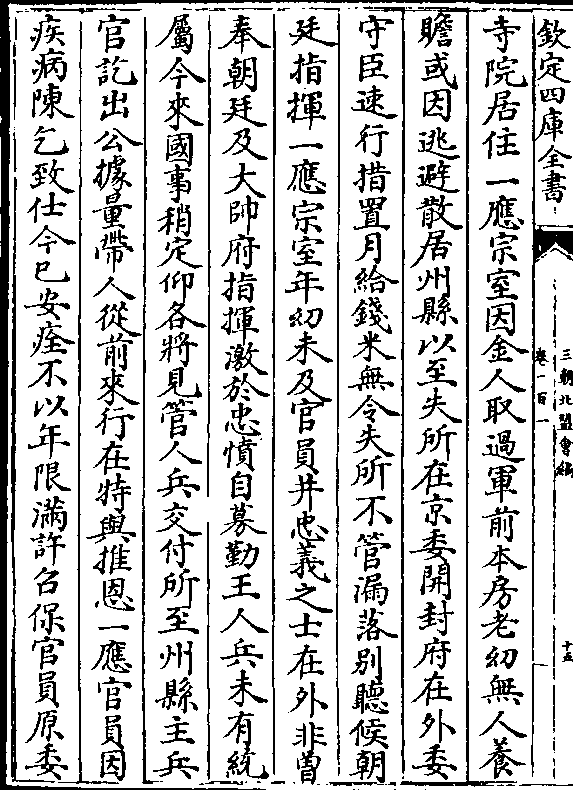 欽定四庫全書
三朝北盟會編
卷一百一
十五
寺院居住一應宗室因金人取過軍前本房老幼無人養
贍或因逃避散居州縣以至失所在京委開封府在外委
守臣速行措置月給錢米無令失所不管漏落别聽候朝
廷指揮一應宗室年幼未及官員并忠義之士在外非曾
奉朝廷及大帥府指揮激於忠憤自募勤王人兵未有統
屬今來國事稍定仰各將見管人兵交付所至州縣主兵
官訖出公據量帶人從前來行在特與推恩一應官員因
疾病陳乞致仕今已安痊不以年限滿許召保官員原委